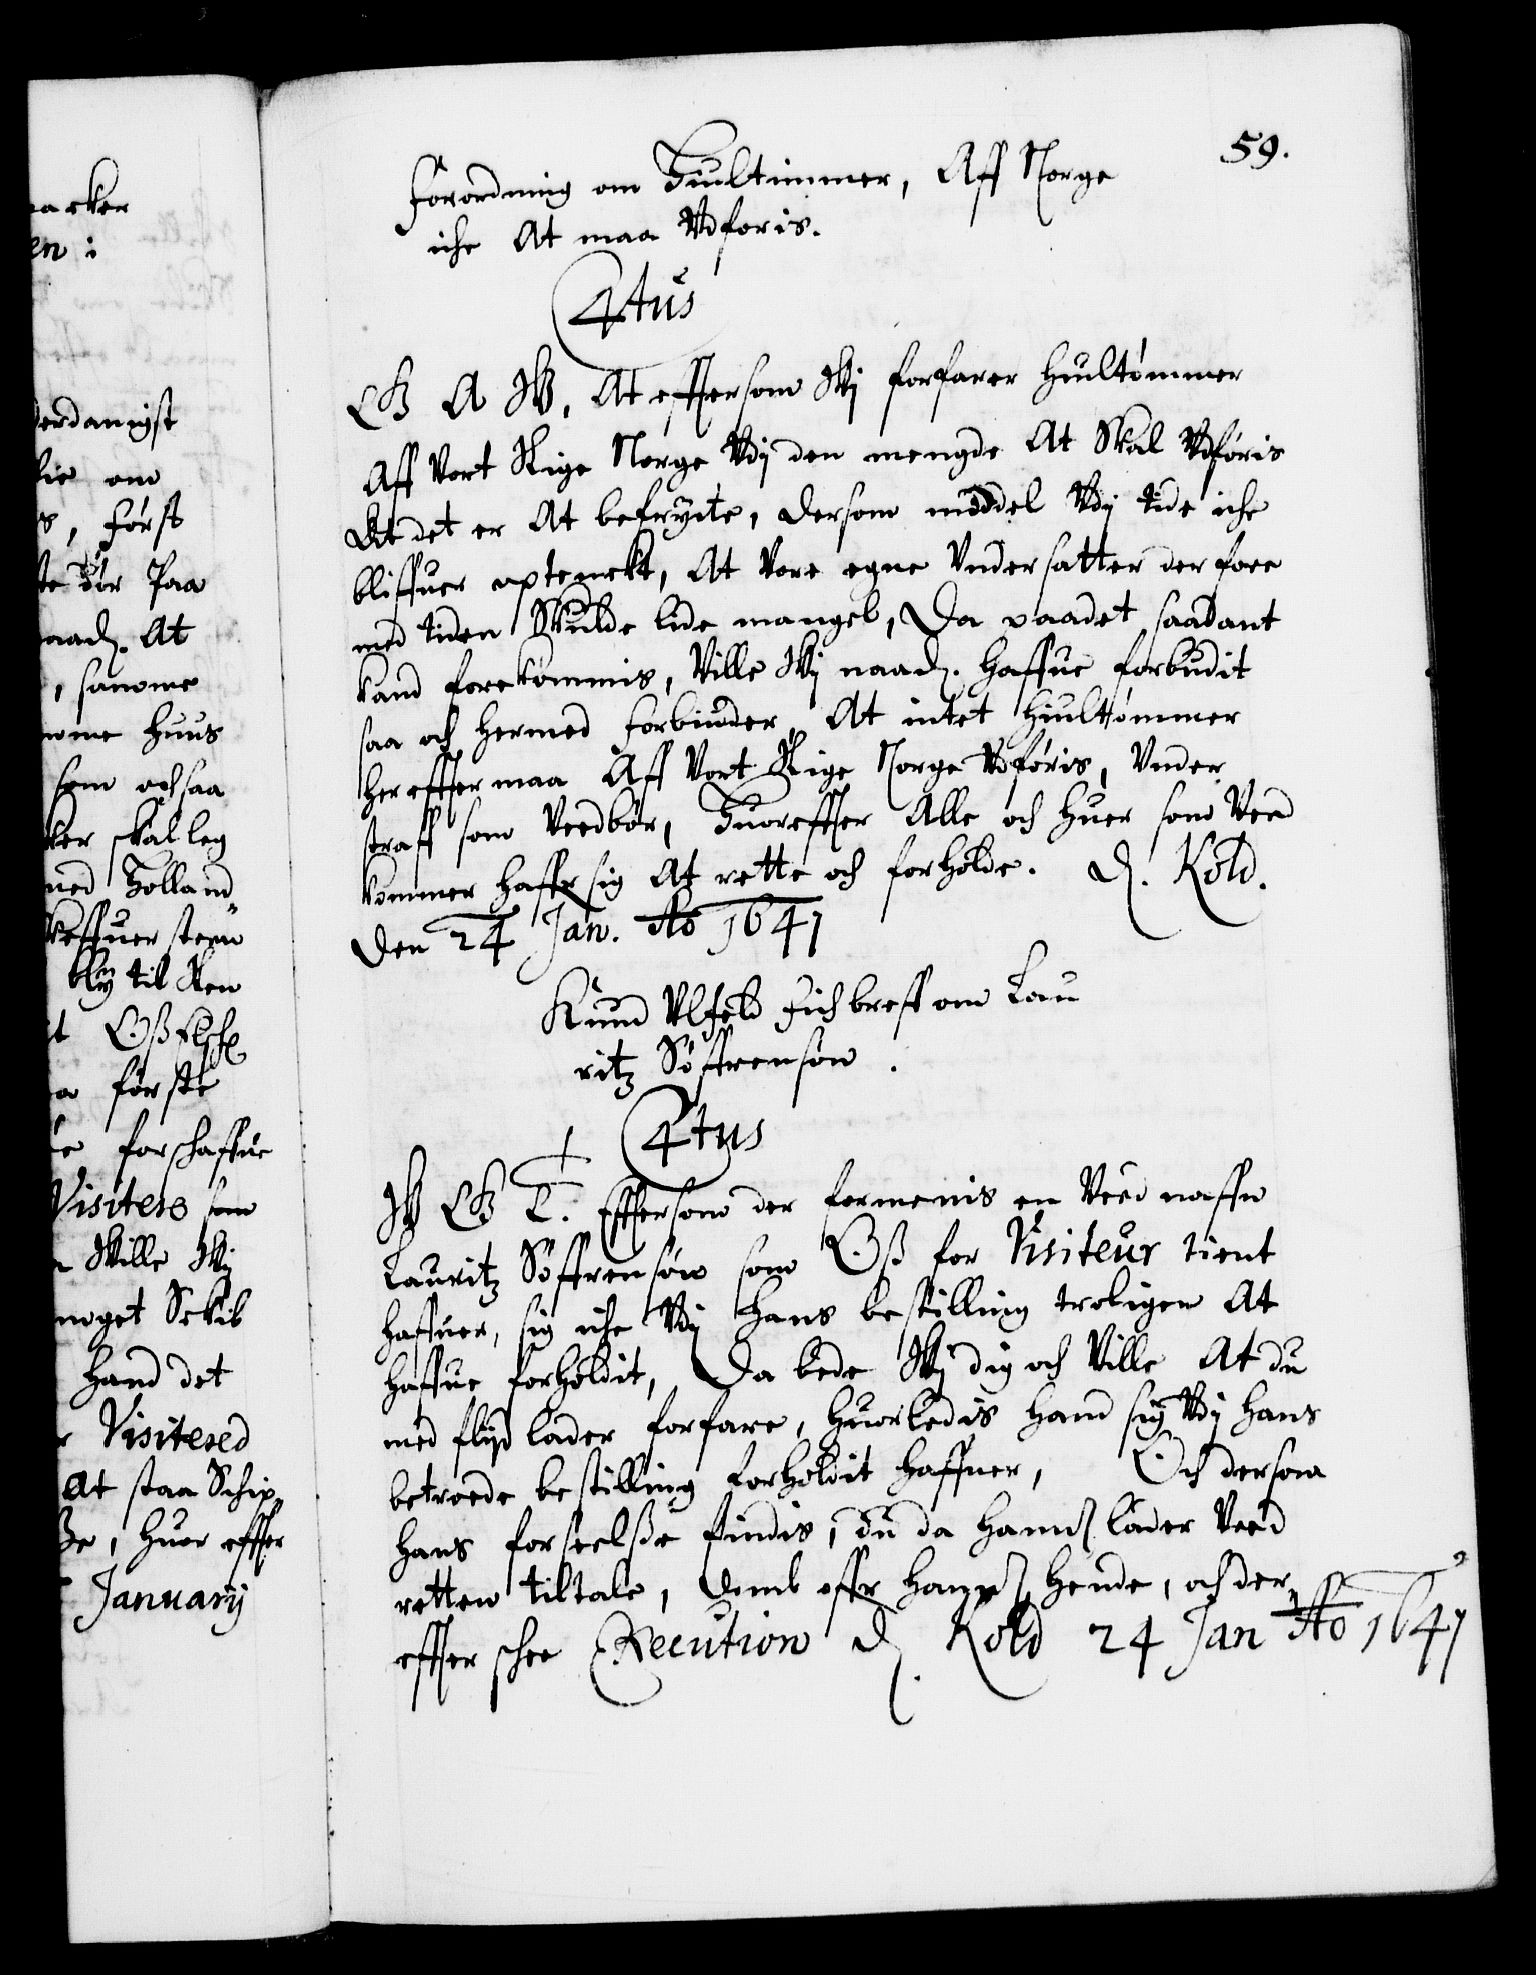 acker
en :
derdanigst
lie om
s, først
te dør Paa
naad. At
, samme
mme Huus
som ochsaa
ker skal leg
med Holland
Keffuer steen
bly til Ken
t Oss
a første
e forschaffue
Visiters som
n Wille Wj
noget Sckib
hand det
r Visitered
At staa Schip
Be, huor effter
Januarij
59.
Forordning om Hiultimmer, Aff Norge
iche At maa Vdføris.
C4tus
G A W, At efftersom Wj forfarer Hiultømmer
Aff Vort Rige Norge Vdj den mengde At Skal Vdføris
At det er At befrycte, dersom middel Vdj tide iche
bliffuer optenckt, At Vore egne Vndersatter der fore
med tiden Skulde lide mangel, Da paadet saadant
kand forekommis, Ville Wj naad. haffue forbudit
saa och hermed forbiuder, At intet Hiultømmer
her effter maa Aff Vort Rige Norge Vdføris, Vnder
straff som Veedbør, Huoreffter Alle och huer som Ved
kommer haffr sig At rette och forholde. D. Kold.
Den 24 Jan. Ao 1641
Knud Vlfeld Fich breff om Lau
ritz Søffrensøn.
C4tus
W G T. Efftersom der formenis en Veed naffn
Lauritz Søffrensøn som Oss for Visiteur tient
haffuer, sig iche Vdj hans bestilling troligen At
haffue forholdit, Da bede Wj dig och Ville At du
med flijd lader forfare, huorledis hand sig Vdj hans
betroede bestilling forholdit haffuer, Och dersom
hans forseelse findis, du da hannd lader Veed
retten tiltale, domb offr hannd hende, och der
effter schee Execution D. Kold 24 Jan Ao 1641